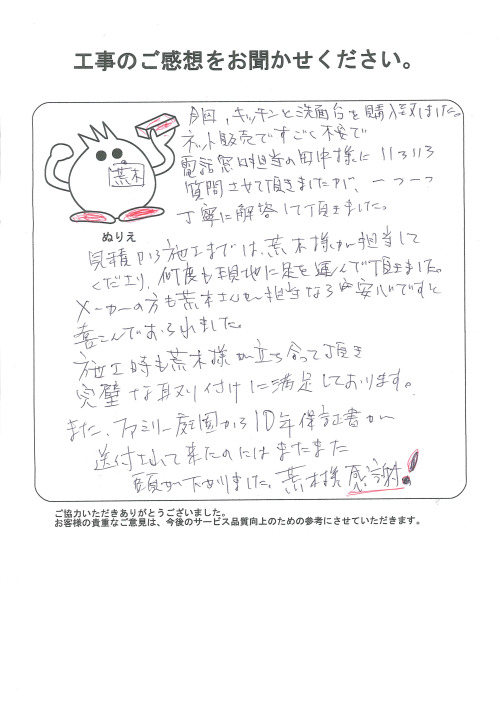 工事のご感想をお聞かせください。
今回、キッチンと洗面台を購入致しました。
ネット販売ですごく不安で
電話窓口担当の田中様にいろいろ
質問させて頂きましたが、一つ一つ
丁寧に解答して頂きました。
荒木
ぬりえ
見積から施工までは、荒木様が担当して
くださり、何度も現地に足を運んで頂きました。
メーカーの方も荒木さんが担当なら安心ですと
喜こんでおられました。
施工時も荒木様が立ち合って頂き
完璧な取り付けに満足しております。
また、ファミリー庭園から10年保証書が
送付されて来たのにはまたまた
頭が下がりました。荒木様感謝!
ご協力いただきありがとうございました。
お客様の貴重なご意見は、今後のサービス品質向上のための参考にさせていただきます。